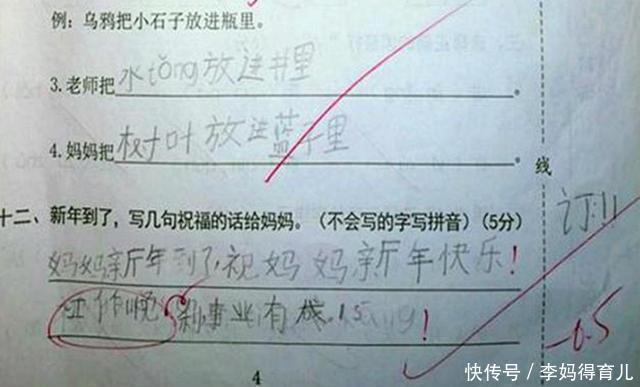 例：乌鸦把小石子放进瓶里。
3.老师把水tǒng放进井里。
4.妈妈把树叶放进蓝子里。
线
十二、新年到了，写几句祝福的话给妈妈。（不会写的字写拼音）（5分）
订!!
妈妈新年到了，祝妈妈新年快乐！
工作 事业有
-0.5
4
快传号／李妈得育儿